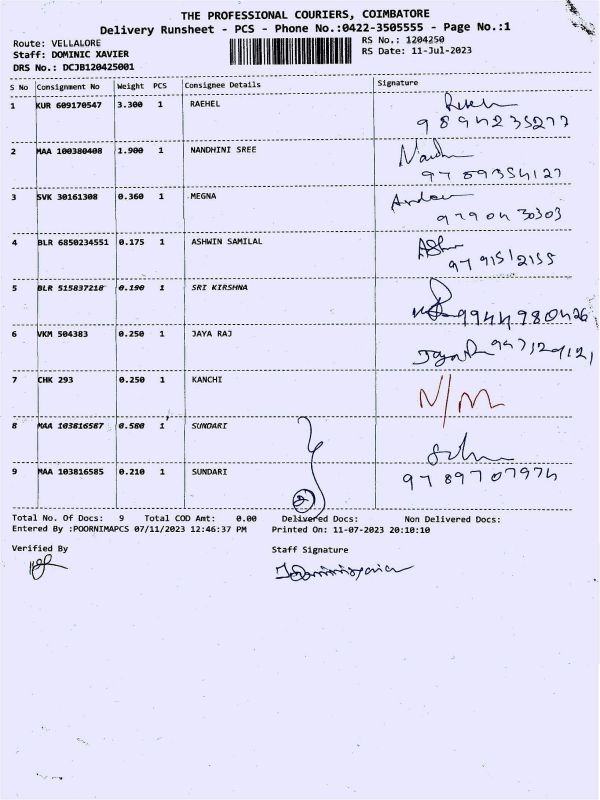 THE PROFESSIONAL COURIERS, COIMBATORE
Delivery Runsheet - PCS - Phone No.:0422-3505555 - Page No.:1
Route: VELLALORE RS No.: 1204250
Staff: DOMINIC XAVIER RS Date: 11-Jul-2023
DRS No.: DCJB120425001
S No Consignment No Weight PCS Consignee Details Signature
1 KUR 609170547 3.300 1 RAEHEL
2 MAA 100380408 1.900 1 NANDHINI SREE
3 SVK 30161308 0.360 1 MEGNA
9790430303
4 BLR 6850234551 0.175 1 ASHWIN SAMILAL
9791512155
5 BLR 515837218 0.190 1 SRI KIRSHNA
9944980426
6 VKM 504383 0.250 1 JAYA RAJ
7 CHK 293 0.250 1 KANCHI N/M
8 MAA 103816587 0.580 1 SUNDARI
9 MAA 103816585 0.210 1 SUNDARI 9789707974
2
Total No. Of Docs: 9 Total COD Amt: 0.00 Delivered Docs: Non Delivered Docs:
Entered By :POORNIMAPCS 07/11/2023 12:46:37 PM Printed On: 11-07-2023 20:10:10
Verified By Staff Signature